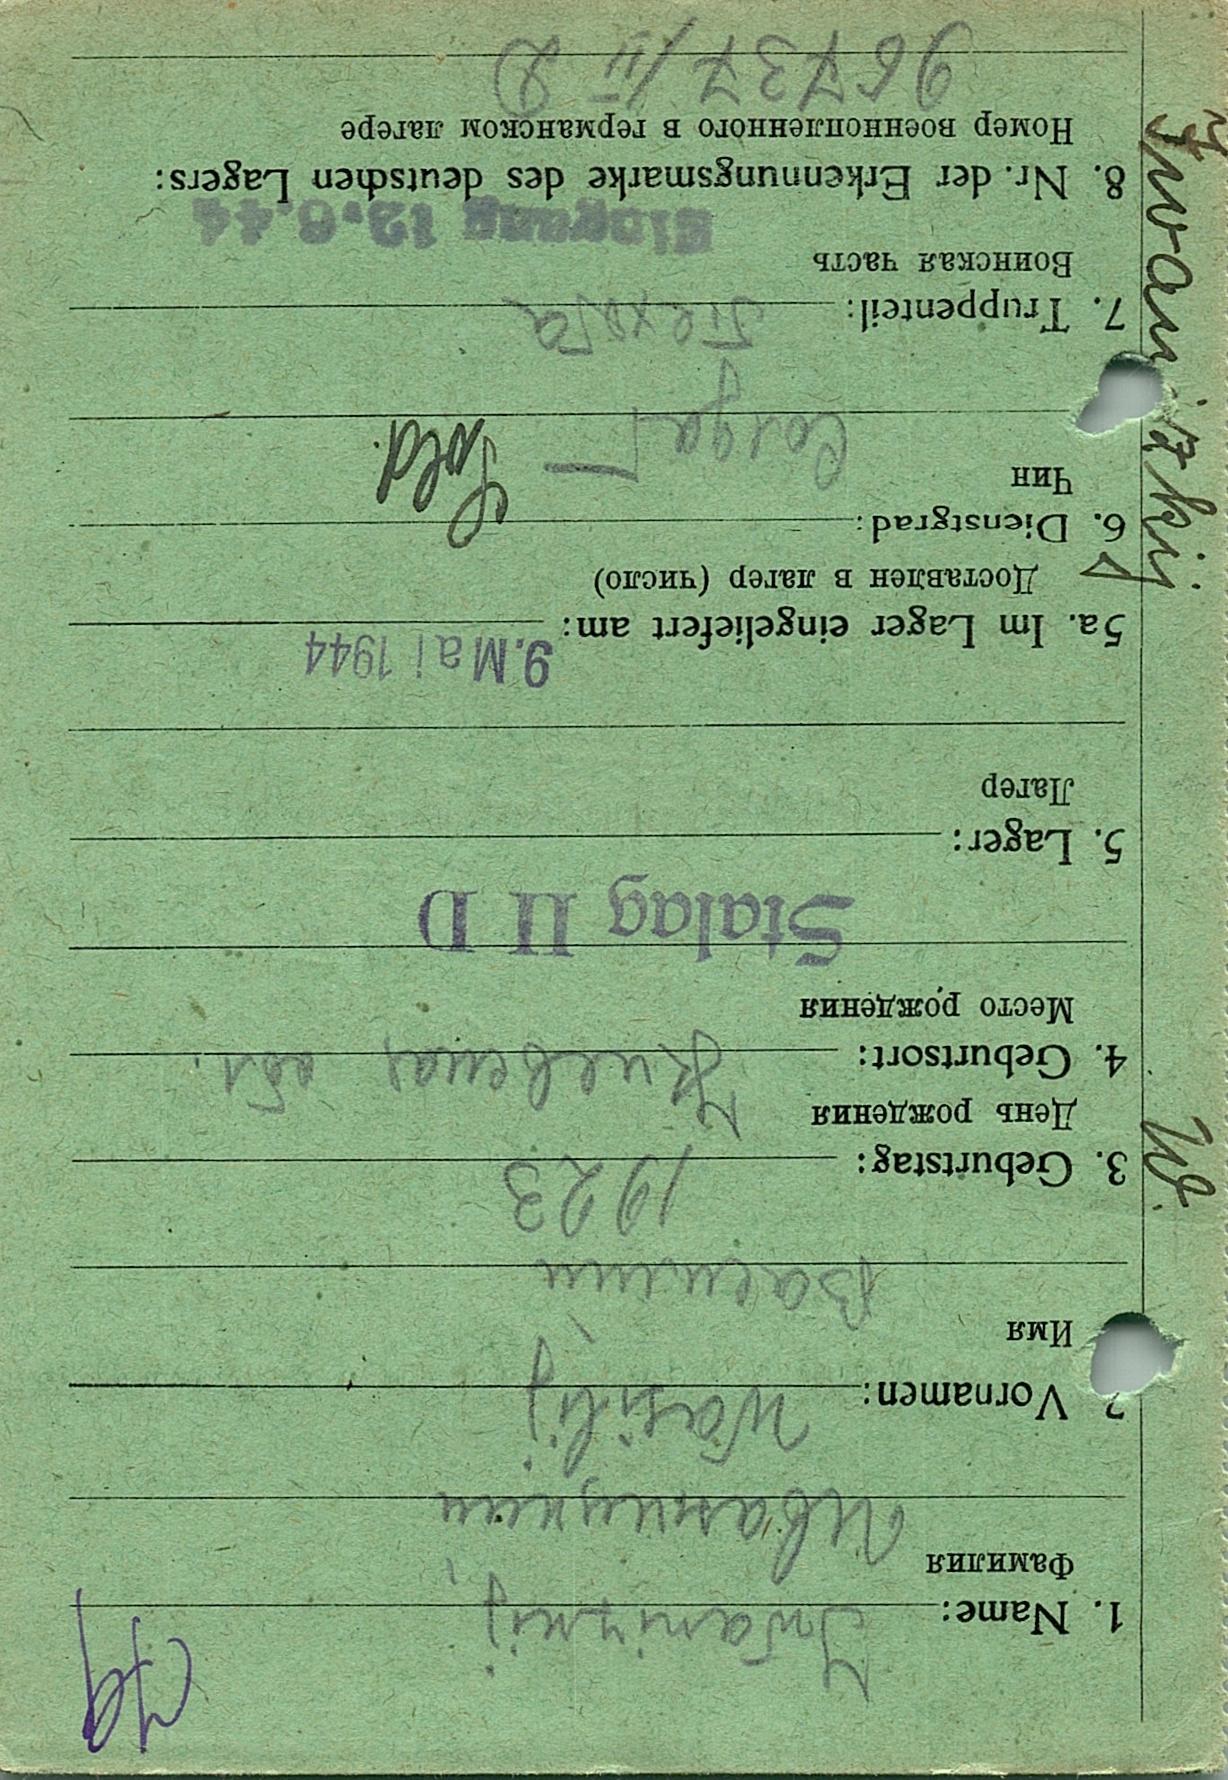 1. Name: Iwanizkij,
Фамилия Иваницкий
2. Vornamen: Wasilij
Имя Василий
3. Geburtstag: 1923
День рождения
4. Geburtsort: Киевская обл.
Место рождения
Stalag II D
5. Lager:
Лагер
5a. Im Lager eingeliefert am: 9. Mai 1944
Доставлен в лагер (число)
6. Dienstgrad: Sold.
Чин Солдат
7. Truppenteil: Пехота
Воинская часть
Eingang 12.6.44
8. Nr. der Erkennungsmarke des deutschen Lagers:
Номер военнопленного в германском лагере
96737/II D
Iwanizkij
W.